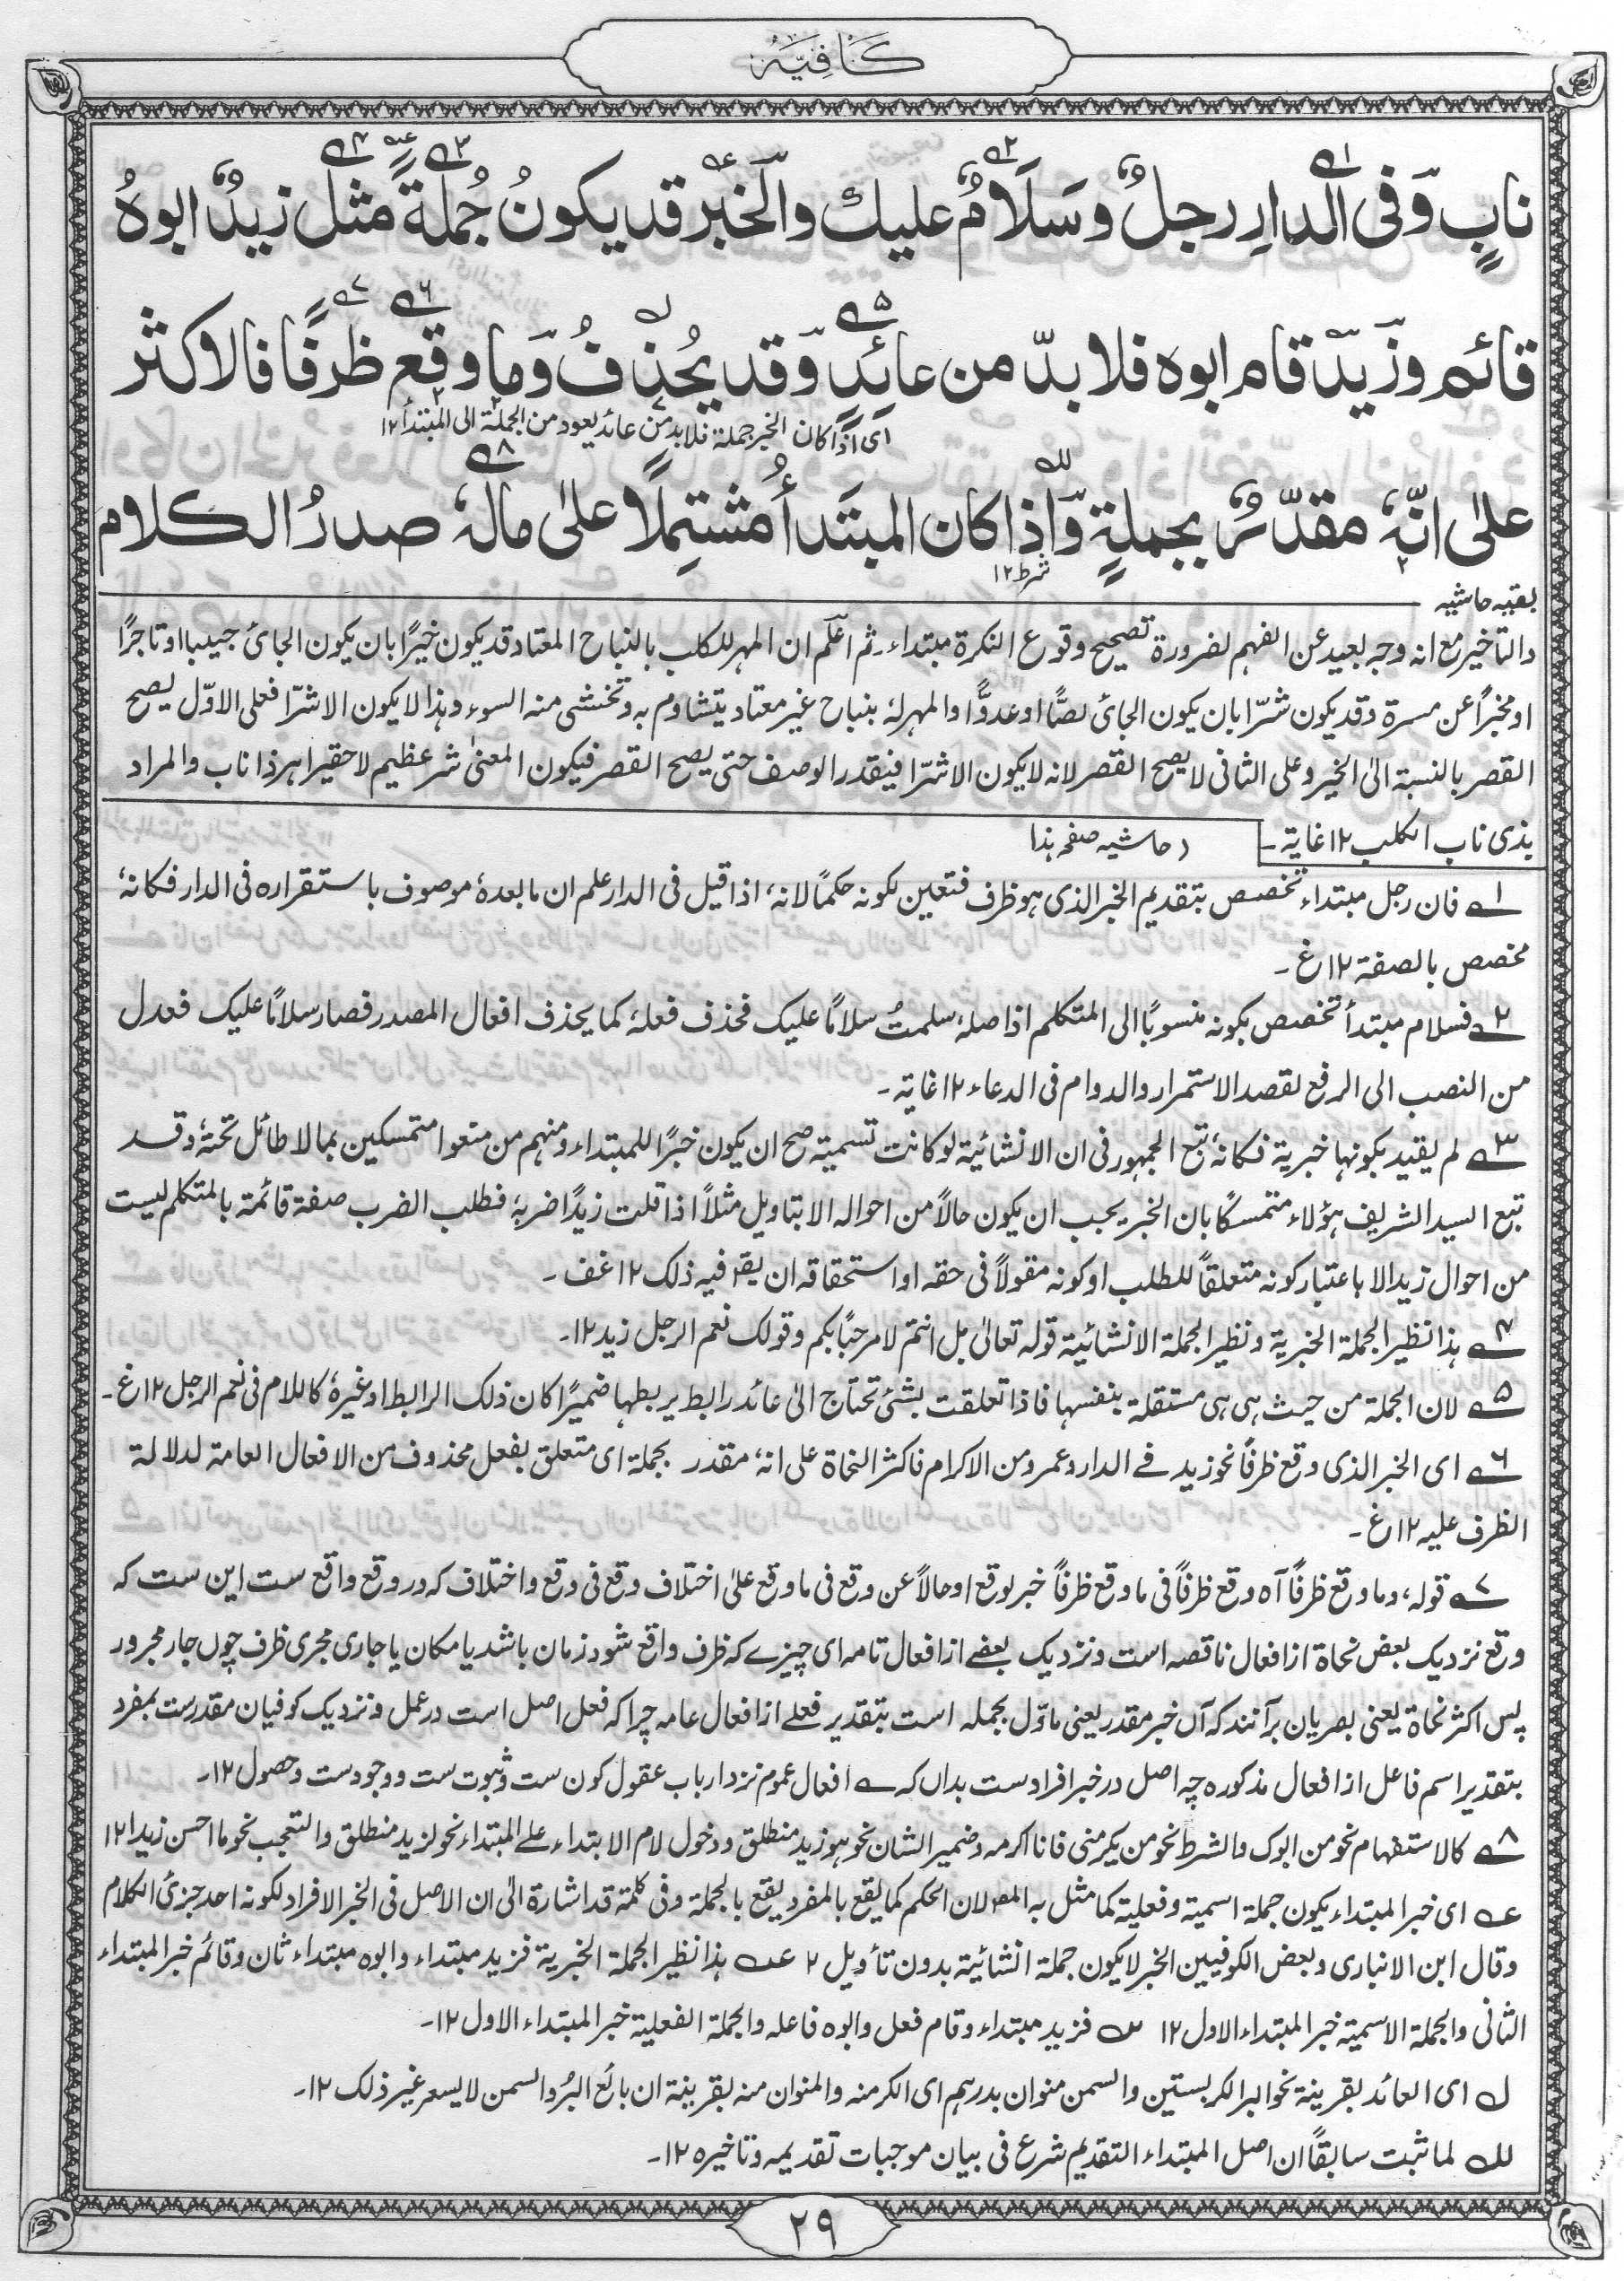 كَافِيَه
نابٍ وَفى الدارِ رجلٌ وسَلَامٌ عليك والخبر قد يكونُ جُملةً مثلُ زيدٌ ابوهُ
قائم وزَيدٌ قام ابوه فلا بدّ من عائدٍ وَقد يُحذفُ وَما وقع ظرفًا فالاكثر
اى اذا كان الخبر جملة فلا بد من عائد يعود من الجملة الى المبتدأ ١٢
علىٰ انّهٗ مقدّرٌ بجملةٍ وَاذا كان المبتَدأ مُشتمِلًا علىٰ مالهٗ صدرُ الكلام
شرط ١٢
بقيه حاشيه
والتاخير مع انه وجه بعيد عن الفهم لضرورة تصحيح وقوع النكرة مبتداء ثم اعلم ان المهر للكلب بالنباح المعتاد قد يكون خيرًا بان يكون الجائ حبيبا اوتاجرًا
او مخبرًا عن مسرة وقد يكون شرّا بان يكون الجائ لصًّا او عدوًّا والمهر له بنباح غير معتاد يتشاوم به وتخشى منه السوء وهذا لا يكون الا شرّا فعلى الاوّل يصح
القصر بالنسبة الى الخير وعلى الثانى لا يصح القصر لانه لا يكون الا شرّا فيقدر الوصف حتى يصح القصر فيكون المعنىٰ شر عظيم لا حقير اهر ذا ناب والمراد
بذى ناب الكلب ١٢ غاية۔
(حاشيه صفحه هذا
١ فان رجل مبتداء تخصص بتقديم الخبر الذى هو ظرف فتعين لكونه حكمًا لانهٗ اذا قيل فى الدار علم ان ما بعدهٗ موصوف باستقراره فى الدار فكانهٗ
مخصص بالصفة ١٢ غ۔
٢ فسلام مبتدأ تخصص بكونه منسوبًا الى المتكلم اذ اصلهٗ سلمتُ سلامًا عليك فحذف فعلهٗ كما يحذف افعال المصدر فصار سلامًا عليك فعدل
من النصب الى الرفع لقصد الاستمرار والدوام فى الدعاء ١٢ غاية۔
٣ لم يقيد بكونها خبرية فكانهٗ تبع الجمهور فى ان الانشائية لو كانت تسمية صح ان يكون خبرًا للمبتداء ومنهم من منعوا متمسكين بما لا طائل تحتهٗ وقد
تبع السيد الشريف هؤلاء متمسكًا بان الخبر يجب ان يكون حالاً من احواله الا بتاويل مثلاً اذا قلت زيدًا ضربهٗ فطلب الضرب صفة قائمة بالمتكلم ليست
من احوال زيد الا باعتبار كونه متعلقاً للطلب او كونه مقولاً فى حقه او استحقاقه ان يقٰ فيه ذلك ١٢ غف۔
٤ هذا نظير الجملة الخبرية ونظير الجملة الانشائية قوله تعالىٰ بل انتم لا مرحبًا بكم وقولك نعم الرجل زيد ١٢۔
٥ لان الجملة من حيث هى هى مستقلة بنفسها فاذا تعلقت بشئ تحتاج الىٰ عائد رابط يربطها ضميرًا كان ذلك الرابط او غيرهٗ كاللام فى نعم الرجل ١٢ غ۔
٦ اى الخبر الذى وقع ظرفًا نحو زيد فے الدار وعمرو من الاكرام فاكثر النحاة على انهٗ مقدر بجملة اى متعلق بفعل محذوف من الافعال العامة لدلالة
الظرف عليه ١٢ غ۔
٧ قوله، وما وقع ظرفًا آه وقع ظرفًا فى ما وقع ظرفًا خبر لوقع او حالاً عن وقع فى ما وقع علىٰ اختلاف وقع فى وقع واختلاف كه در وقع واقع ست اين ست كه
وقع نزديك بعض نحاة از افعال ناقصه است ونزديك بعضے از افعال تامه اى چيزے كه ظرف واقع شود زمان باشد يا مكان يا جارى مجرى ظرف چوں جار مجرور
پس اكثر نحاة يعنى بصريان برآنند كه آں خبر مقدر يعنى ماوّل بجمله است بتقدير فعلے از افعال عامه چرا كه فعل اصل است در عمل ونزديك كوفيان مقدرست بمفرد
بتقدير اسم فاعل از افعال مذكوره چه اصل در خبر افرادست بداں كه ے افعال عموم نزد ارباب عقول كون ست وثبوت ست ووجودست وحصول ١٢۔
٨ كالاستفهام نحو من ابوك والشرط نحو من يكرمنى فانا اكرمه وضمير الشان نحو هو زيد منطلق ودخول لام الابتداء علے المبتداء نحو لزيد منطلق والتعجب نحو ما احسن زيدا ١٢
عـه اى خبر المبتداء يكون جملة اسمية وفعلية كما مثل به المصؒ لان الحكم كما يقع بالمفرد يقع بالجملة وفى كلمة قد اشارة الىٰ ان الاصل فى الخبر الافراد لكونه احد جزئ الكلام
وقال ابن الانبارى وبعض الكوفيين الخبر لا يكون جملة انشائية بدون تأويل ٢ عـه هذا نظير الجملة الخبرية فزيد مبتداء وابوه مبتداء ثان وقائم خبر المبتداء
الثانى والجملة الاسمية خبر المبتداء الاول ١٢ فزيد مبتداء وقام فعل وابوه فاعله والجملة الفعلية خبر المبتداء الاول ١٢۔
ل اى العائد بقرينة نحو البر الكر بستين والسمن منوان بدرهم اى الكر منه والمنوان منه بقرينة ان بائع البُر والسمن لا يسعر غير ذلك ١٢۔
لل لما ثبت سابقًا ان اصل المبتداء التقديم شرع فى بيان موجبات تقديمه وتاخيره ١٢۔
٢٩